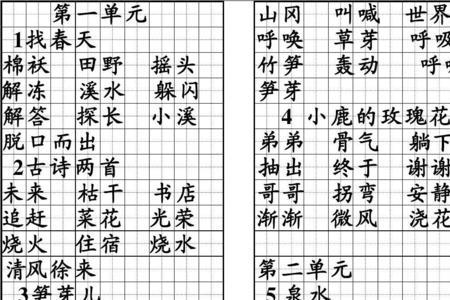 第一单元
1找春天
棉袄 田野 摇头
解冻 溪水 躲闪
解答 探长 小溪
脱口而出
2古诗两首
未来 枯干 书店
追赶 菜花 光荣
烧火 住宿 烧水
清风徐来
3笋芽儿
山冈 叫喊 世界
呼唤 草芽 呼吸
竹笋 轰动 呼
笋芽
4 小鹿的玫瑰花
弟弟 骨气 躺下
抽出 终于 谢谢
哥哥 拐弯 安静
渐渐 微风 浇花
第二单元
5泉水